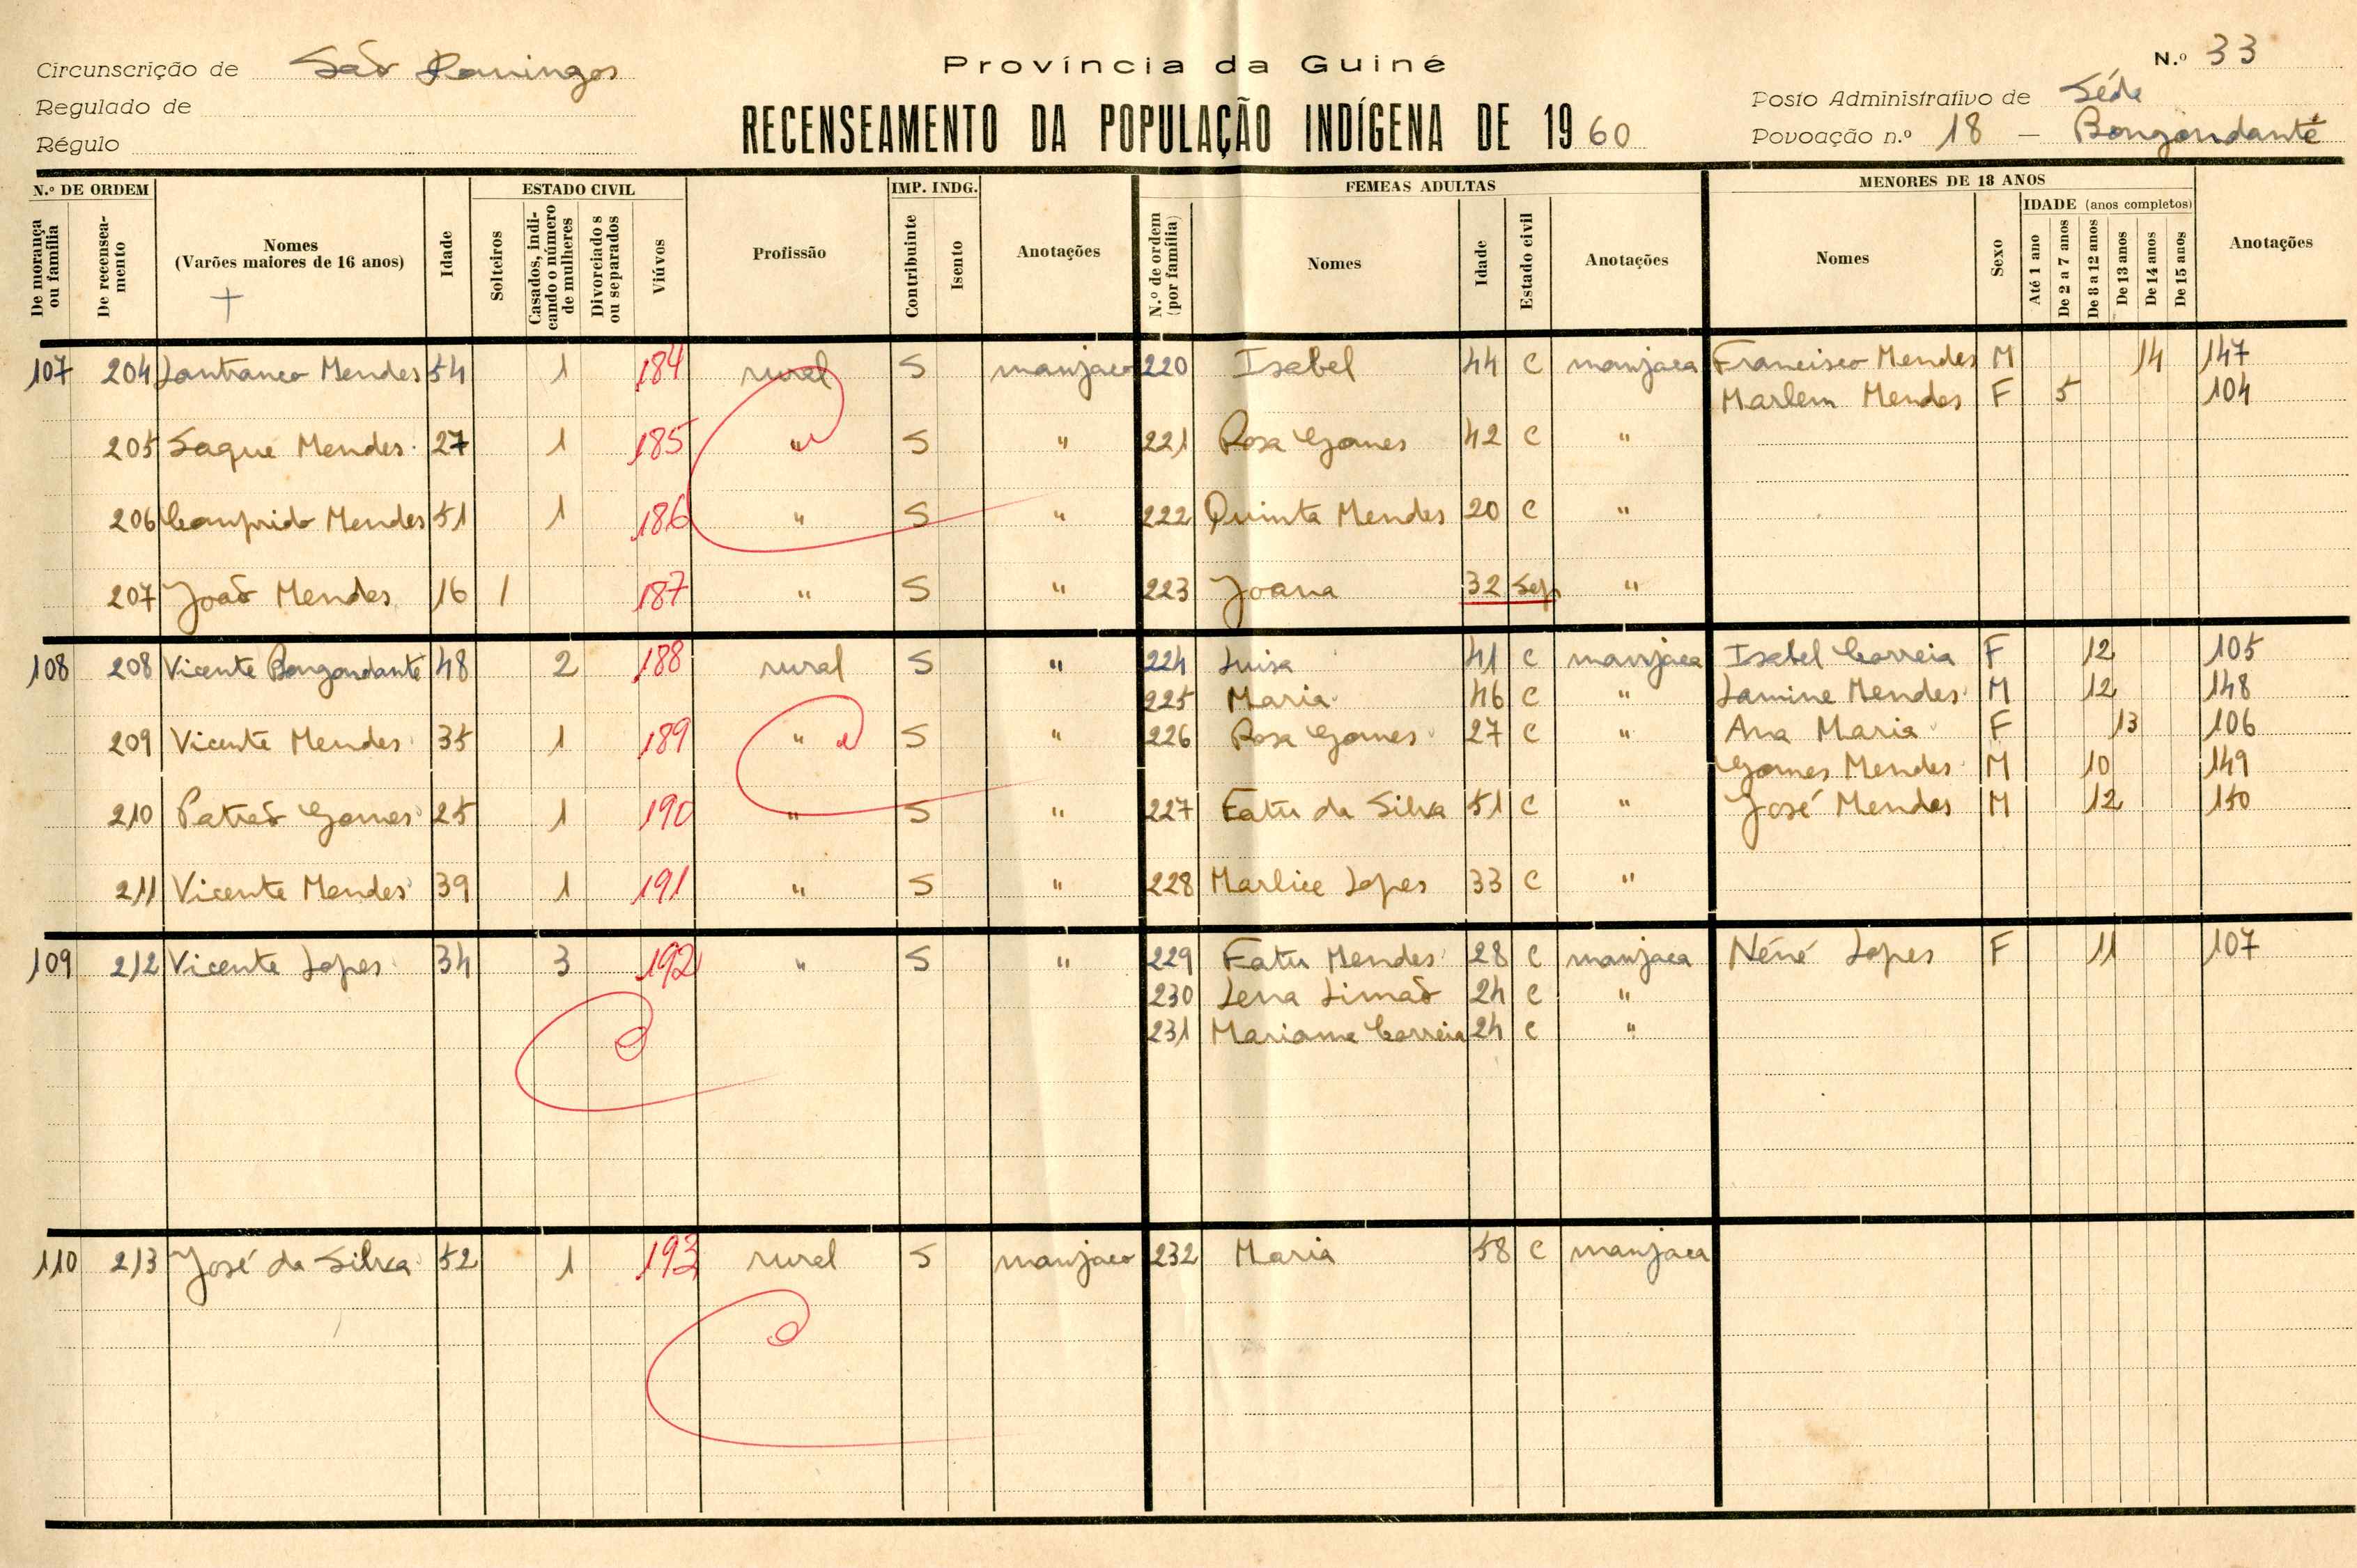 Circunscrição de São Domingos
Regulado de
Régulo
Província da Guiné
RECENSEAMENTO DA POPULAÇÃO INDÍGENA DE 1960
N.º 33
Posto Administrativo de Séde
Povoação n.º 18 — Bongondanté
N.º DE ORDEM ESTADO CIVIL IMP. INDG. FEMEAS ADULTAS MENORES DE 18 ANOS
De morança ou família
De recensea-mento
Nomes (Varões maiores de 16 anos)
Idade
Solteiros
Casados, indi-cando o número de mulheres
Divorciados ou separados
Viúvos
Profissão
Contribuinte
Isento
Anotações
N.º de ordem (por família)
Nomes
Idade
Estado civil
Anotações
Nomes
Sexo
IDADE (anos completos)
Até 1 ano
De 2 a 7 anos
De 8 a 12 anos
De 13 anos
De 14 anos
De 15 anos
Anotações
107 204 Mendes 54 1 184 rural S manjaco 220 Isabel 44 C manjaca Francisco Mendes M 14 147
Marlem Mendes F 5 104
205 Saque Mendes 27 1 185 " S " 221 Rosa Gomes 42 C "
206 Mendes 51 1 186 " S " 222 Quinta Mendes 20 C "
207 João Mendes 16 1 187 " S " 223 Joana 32 Sep "
108 208 Vicente Bongondante 48 2 188 rural S " 224 Luisa 41 C manjaca Isabel Correia F 12 105
225 Maria 46 C " Lamine Mendes M 12 148
209 Vicente Mendes 35 1 189 " S " 226 Rosa Gomes 27 C " Ana Maria F 13 106
Gomes Mendes M 10 149
210 Patrão Gomes 25 1 190 " S " 227 Fatu da Silva 51 C " José Mendes M 12 150
211 Vicente Mendes 39 1 191 " S " 228 Marlice Lopes 33 C "
109 212 Vicente Lopes 34 3 192 " S " 229 Fatu Mendes 28 C manjaca Néné Lopes F 11 107
230 Lena Limão 24 C "
231 Mariama Correia 24 C "
110 213 José da Silva 52 1 193 rural S manjaco 232 Maria 58 C manjaca